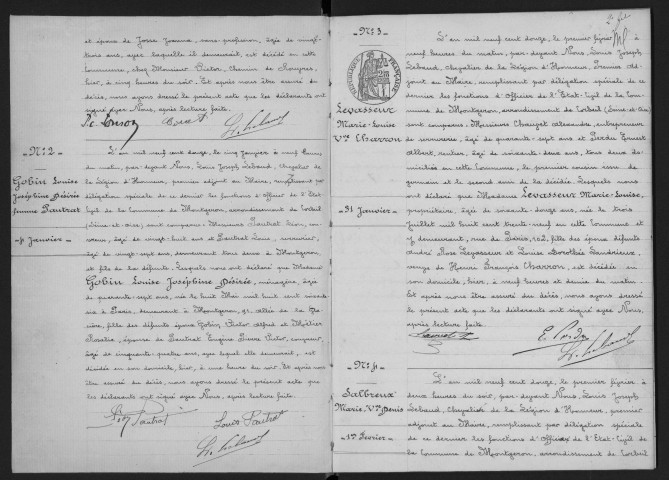 et épouse de Josse Jeanne, sans profession, âgée de vingt-
trois ans, avec laquelle il demeurait, est décédé en cette
Commune, chez Monsieur Chemin de Rouvres,
hier, à cinq heures du soir. Et après nous être assuré du
décès, nous avons dressé le présent acte que les déclarants ont
signé avec Nous, après lecture faite.
N° 2
Gobin Louise
Joséphine Désirée
femme Pautrat
4 Janvier
L'an mil neuf cent douze, le cinq janvier à neuf heures
du matin, par-devant Nous, Louis Joseph Lebaud, Chevalier de
la Légion d'Honneur, premier adjoint au Maire, remplissant par
délégation spéciale de ce dernier les fonctions d'Officier de l'Etat
Civil de la Commune de Montgeron, arrondissement de Corbeil
(Seine-et-Oise), sont comparus: Messieurs Pautrat Léon,
âgé de vingt-huit ans et Pautrat Louis, serrurier,
âgé de vingt-sept ans, demeurant tous deux à Montgeron
et fils de la défunte. Lesquels nous ont déclaré que Madame
Gobin Louise Joséphine Désirée, ménagère, âgée
de quarante-sept ans, née le huit Mai mil huit cent soixante-
à Paris, demeurant à Montgeron, 91, allée de la
fille des défunts époux Gobin Victor Alfred et Mortier
Rosalie, épouse de Pautrat Eugène Pierre Victor,
âgé de cinquante-quatre ans, avec lequel elle demeurait, est
décédée en son domicile, hier, à une heure du soir. Et après nous
être assuré du décès, nous avons dressé le présent acte que
les déclarants ont signé avec Nous, après lecture faite.
Léon Pautrat
Louis Pautrat
L. Lebaud
N° 3
Levasseur
Marie-Louise
Vve Charron
31 Janvier
L'an mil neuf cent douze, le premier février à
neuf heures du matin, par-devant Nous, Louis Joseph
Lebaud, Chevalier de la Légion d'Honneur, Premier Ad-
joint au Maire, remplissant par délégation spéciale de ce
dernier les fonctions d'Officier de l'Etat-Civil de la Com-
mune de Montgeron, arrondissement de Corbeil (Seine-et-Oise)
sont comparus: Messieurs Alexandre, entrepreneur
de serrurerie, âgé de quarante-sept ans et Ernest
Albert, rentier, âgé de soixante-deux ans, tous deux do-
miciliés en cette Commune, le premier cousin issu de
germain et le second ami de la décédée. Lesquels nous
ont déclaré que Madame Levasseur Marie-Louise,
propriétaire, âgée de soixante-douze ans, née le trois
Juillet mil huit cent trente-neuf en cette Commune et
y demeurant, rue de Paris, 102, fille des époux défunts
André Rose Levasseur et Louise Dorothée
veuve de Henri François Charron, est décédée en
son domicile, hier, à neuf heures et demie du matin.
Et après nous être assuré du décès, nous avons dressé
le présent acte que les déclarants ont signé avec Nous,
après lecture faite.
L. Lebaud
N° 4
Salbreux
Marie, Vve Denis
1er Février
L'an mil neuf cent douze, le premier février à
deux heures du soir, par-devant Nous, Louis Joseph
Lebaud, Chevalier de la Légion d'Honneur, premier
adjoint au Maire, remplissant par délégation spéciale
de ce dernier les fonctions d'Officier de l'Etat-Civil de
la Commune de Montgeron, arrondissement de Corbeil